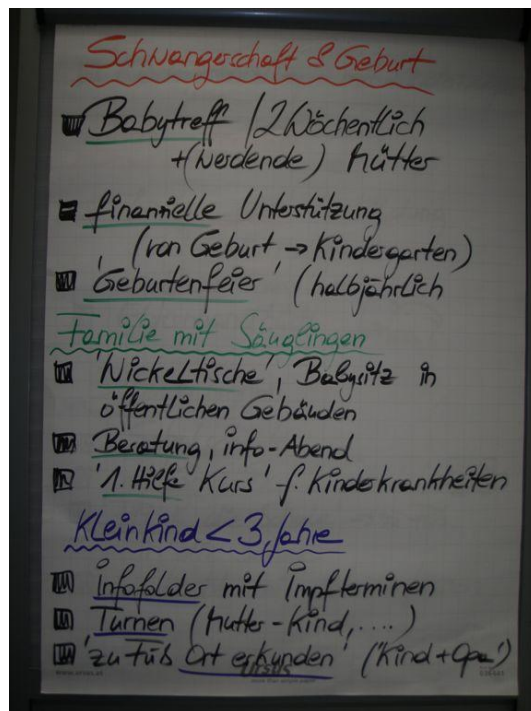 Schwangerschaft & Geburt
Babytreff / 2 Wöchentlich
+ (werdende) Mütter
finanzielle Unterstützung
(von Geburt → Kindergarten)
'Geburtenfeier' (halbjährlich
Familie mit Säuglingen
'Wickeltische', Babysitz in
öffentlichen Gebäuden
Beratung, info-Abend
'1. Hilfe Kurs' f. Kinderkrankheiten
Kleinkind < 3 Jahre
Infofolder mit Impfterminen
Turnen (Mutter-Kind, ....)
'zu Fuß Ort erkunden' ('Kind + Opa')